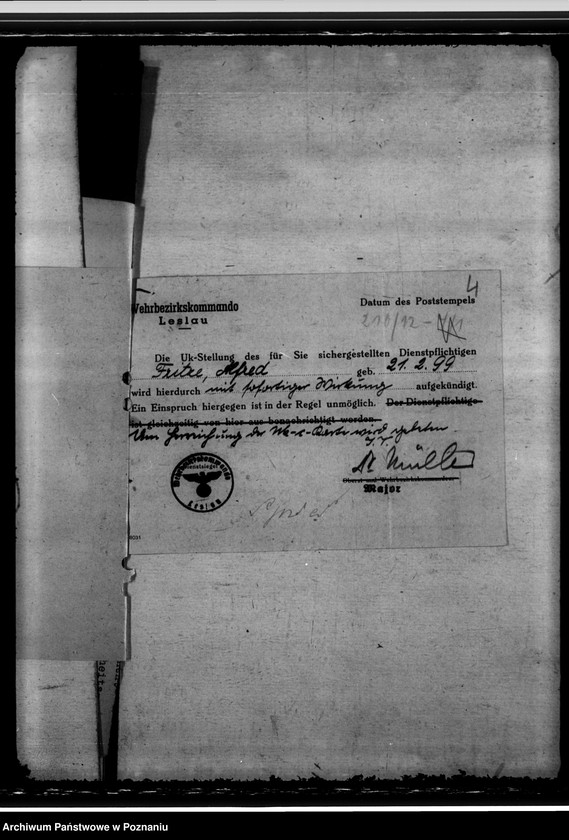 4
Wehrbezirkskommando
Leslau
Datum des Poststempels
Die Uk-Stellung des für Sie sichergestellten Dienstpflichtigen
Fritze, Alfred geb. 21.2.99
wird hierdurch mit sofortiger Wirkung aufgekündigt.
Ein Einspruch hiergegen ist in der Regel unmöglich. Der Dienstpflichtige
ist gleichzeitig von hier aus benachrichtigt worden.
Um Herreichung der Uk-Karte wird gebeten.
Müller
Major
Wehrbezirkskommando
Dienstsiegel
Leslau
Archiwum Państwowe w Poznaniu